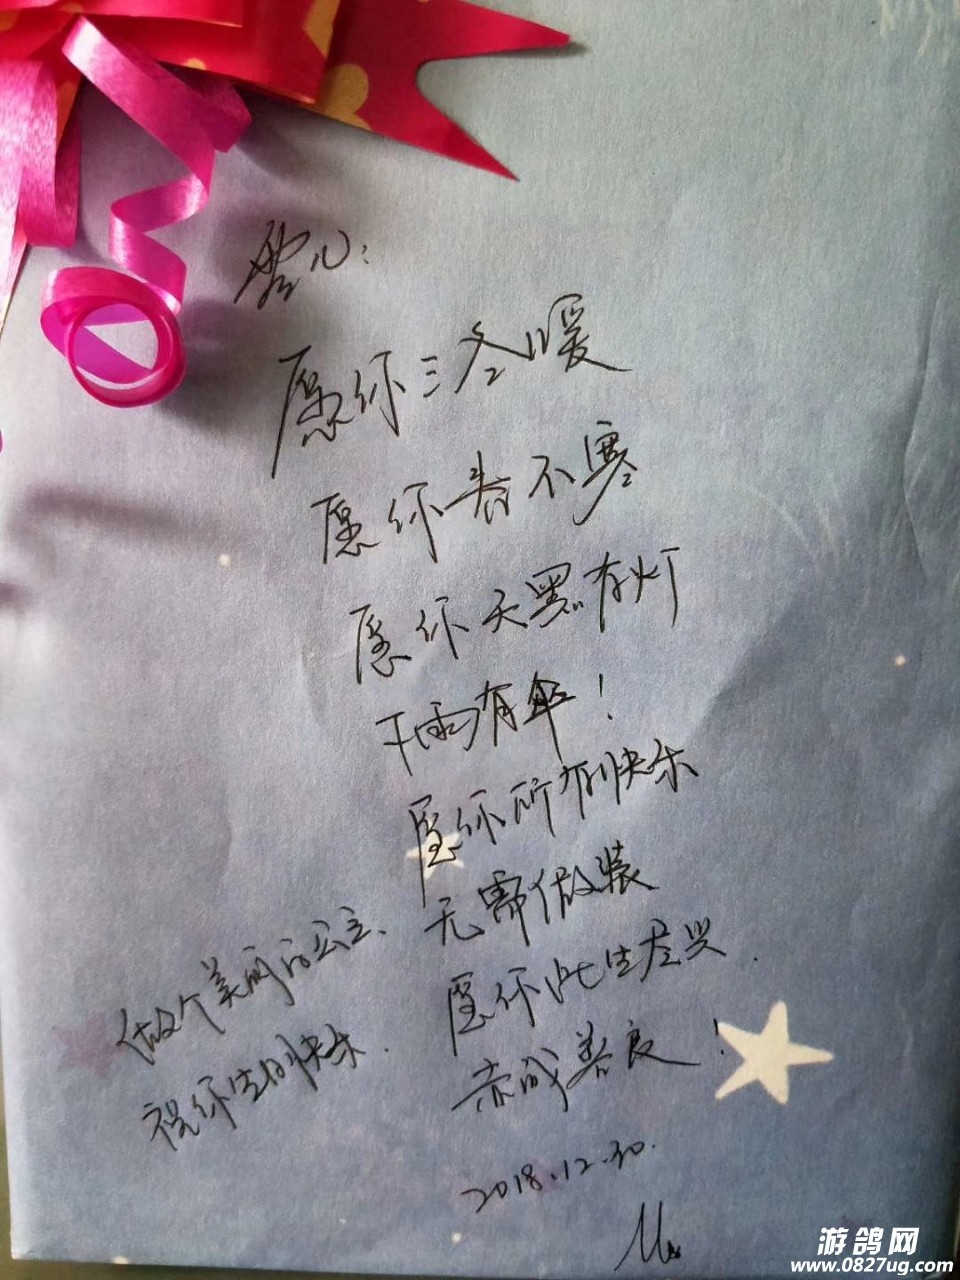 愿你三冬暖
愿你春不寒
愿你天黑有灯
下雨有伞！
愿你所有快乐
无需假装
愿你此生尽兴.
赤诚善良！
做个美丽的公主、
祝你生日快乐.
2018.12.30.
游鸽网
www.0827ug.com